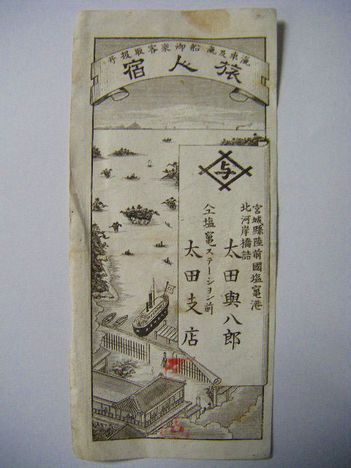 滊車及滊船御乗客取扱所
旅人宿
与
宮城縣陸前國塩竈港
北河岸橋詰
太田與八郎
仝塩竈ステーション前
太田支店